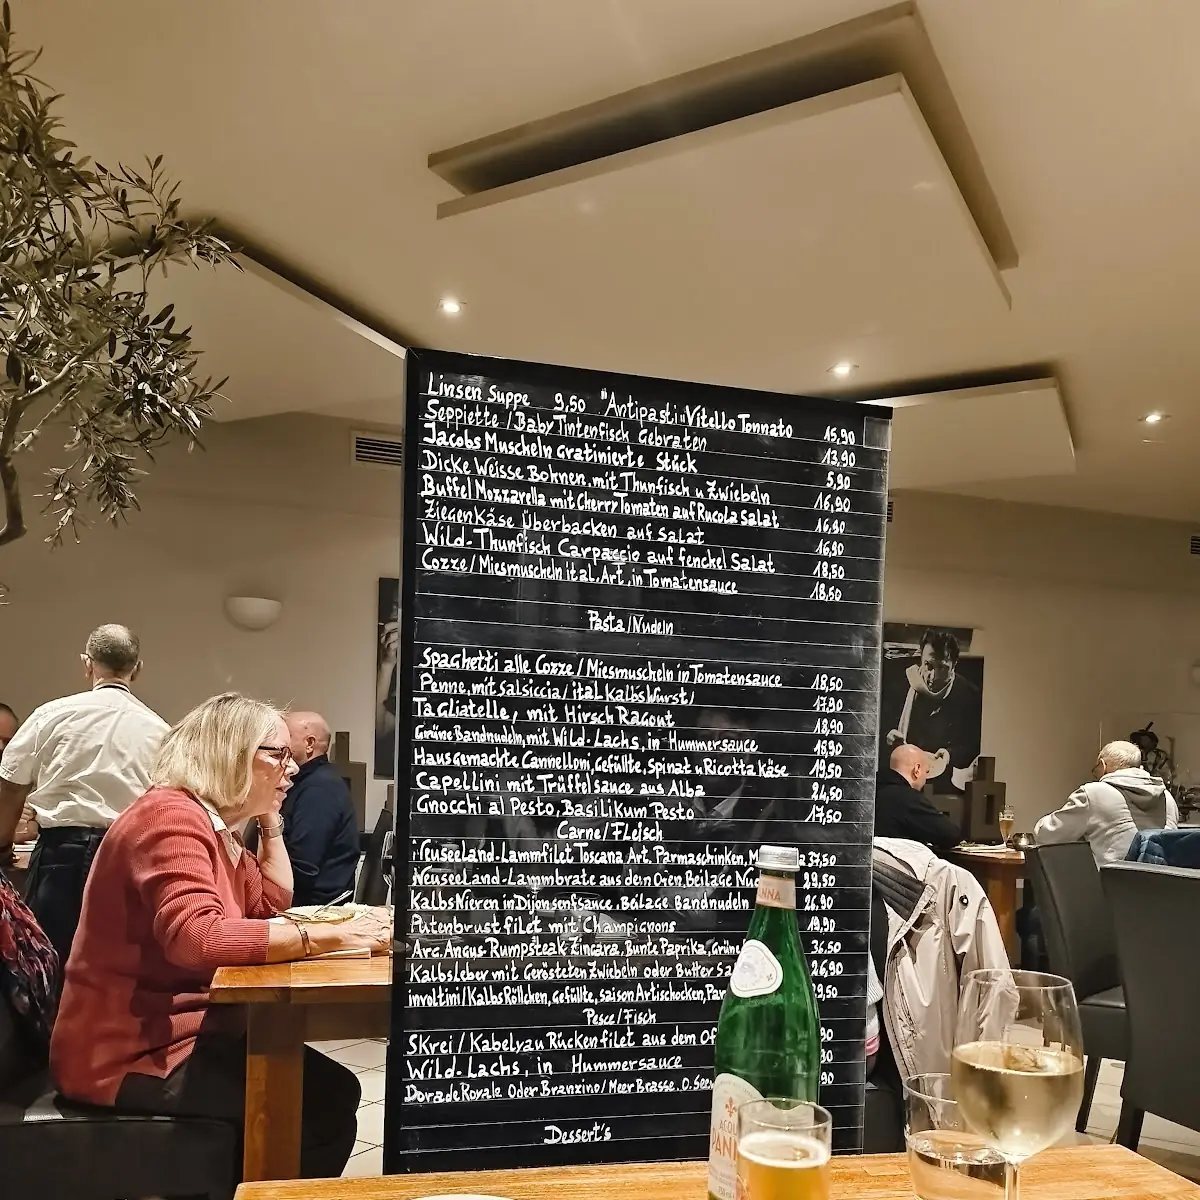 Linsen Suppe 9,50 "Antipasti" Vitello Tonnato 15,90
Seppiette / Baby Tintenfisch Gebraten 13,90
Jacobs Muscheln gratinierte Stück 5,90
Dicke Weisse Bohnen, mit Thunfisch u Zwiebeln 16,90
Büffel Mozzarella mit Cherry Tomaten auf Rucola Salat 16,90
Ziegen Käse Überbacken auf Salat 16,90
Wild-Thunfisch Carpaccio auf fenchel Salat 18,50
Cozze / Miesmuscheln ital. Art, in Tomatensauce 18,50
Pasta / Nudeln
Spaghetti alle Cozze / Miesmuscheln in Tomatensauce 18,50
Penne, mit Salsiccia / ital Kalbs Wurst / 17,90
Tagliatelle, mit Hirsch Ragout 18,90
Grüne Bandnudeln, mit Wild-Lachs, in Hummersauce 18,90
Hausgemachte Cannelloni, gefüllte, Spinat u Ricotta Käse 19,50
Capellini mit Trüffelsauce aus Alba 24,50
Gnocchi al Pesto, Basilikum Pesto 17,50
Carne / Fleisch
Neuseeland-Lammfilet Toscana Art, Parmaschinken, 37,50
Neuseeland-Lammbrate aus dem Ofen, Beilage 29,50
Kalbs Nieren in Dijonsenfsauce, Beilage Bandnudeln 26,90
Putenbrustfilet mit Champignons 19,90
Arg. Angus Rumpsteak Zingara, Bunte Paprika, Grüne 36,50
Kalbsleber mit Gerösteten Zwiebeln oder Butter 26,90
involtini / Kalbs Röllchen, gefüllte, saison Artischocken, 29,50
Pesce / Fisch
Skrei / Kabelyau Rückenfilet aus dem 90
Wild-Lachs, in Hummersauce 90
Dorade Royale Oder Branzino / Meer Brasse. O. 90
Dessert's
ACQUA
PANNA